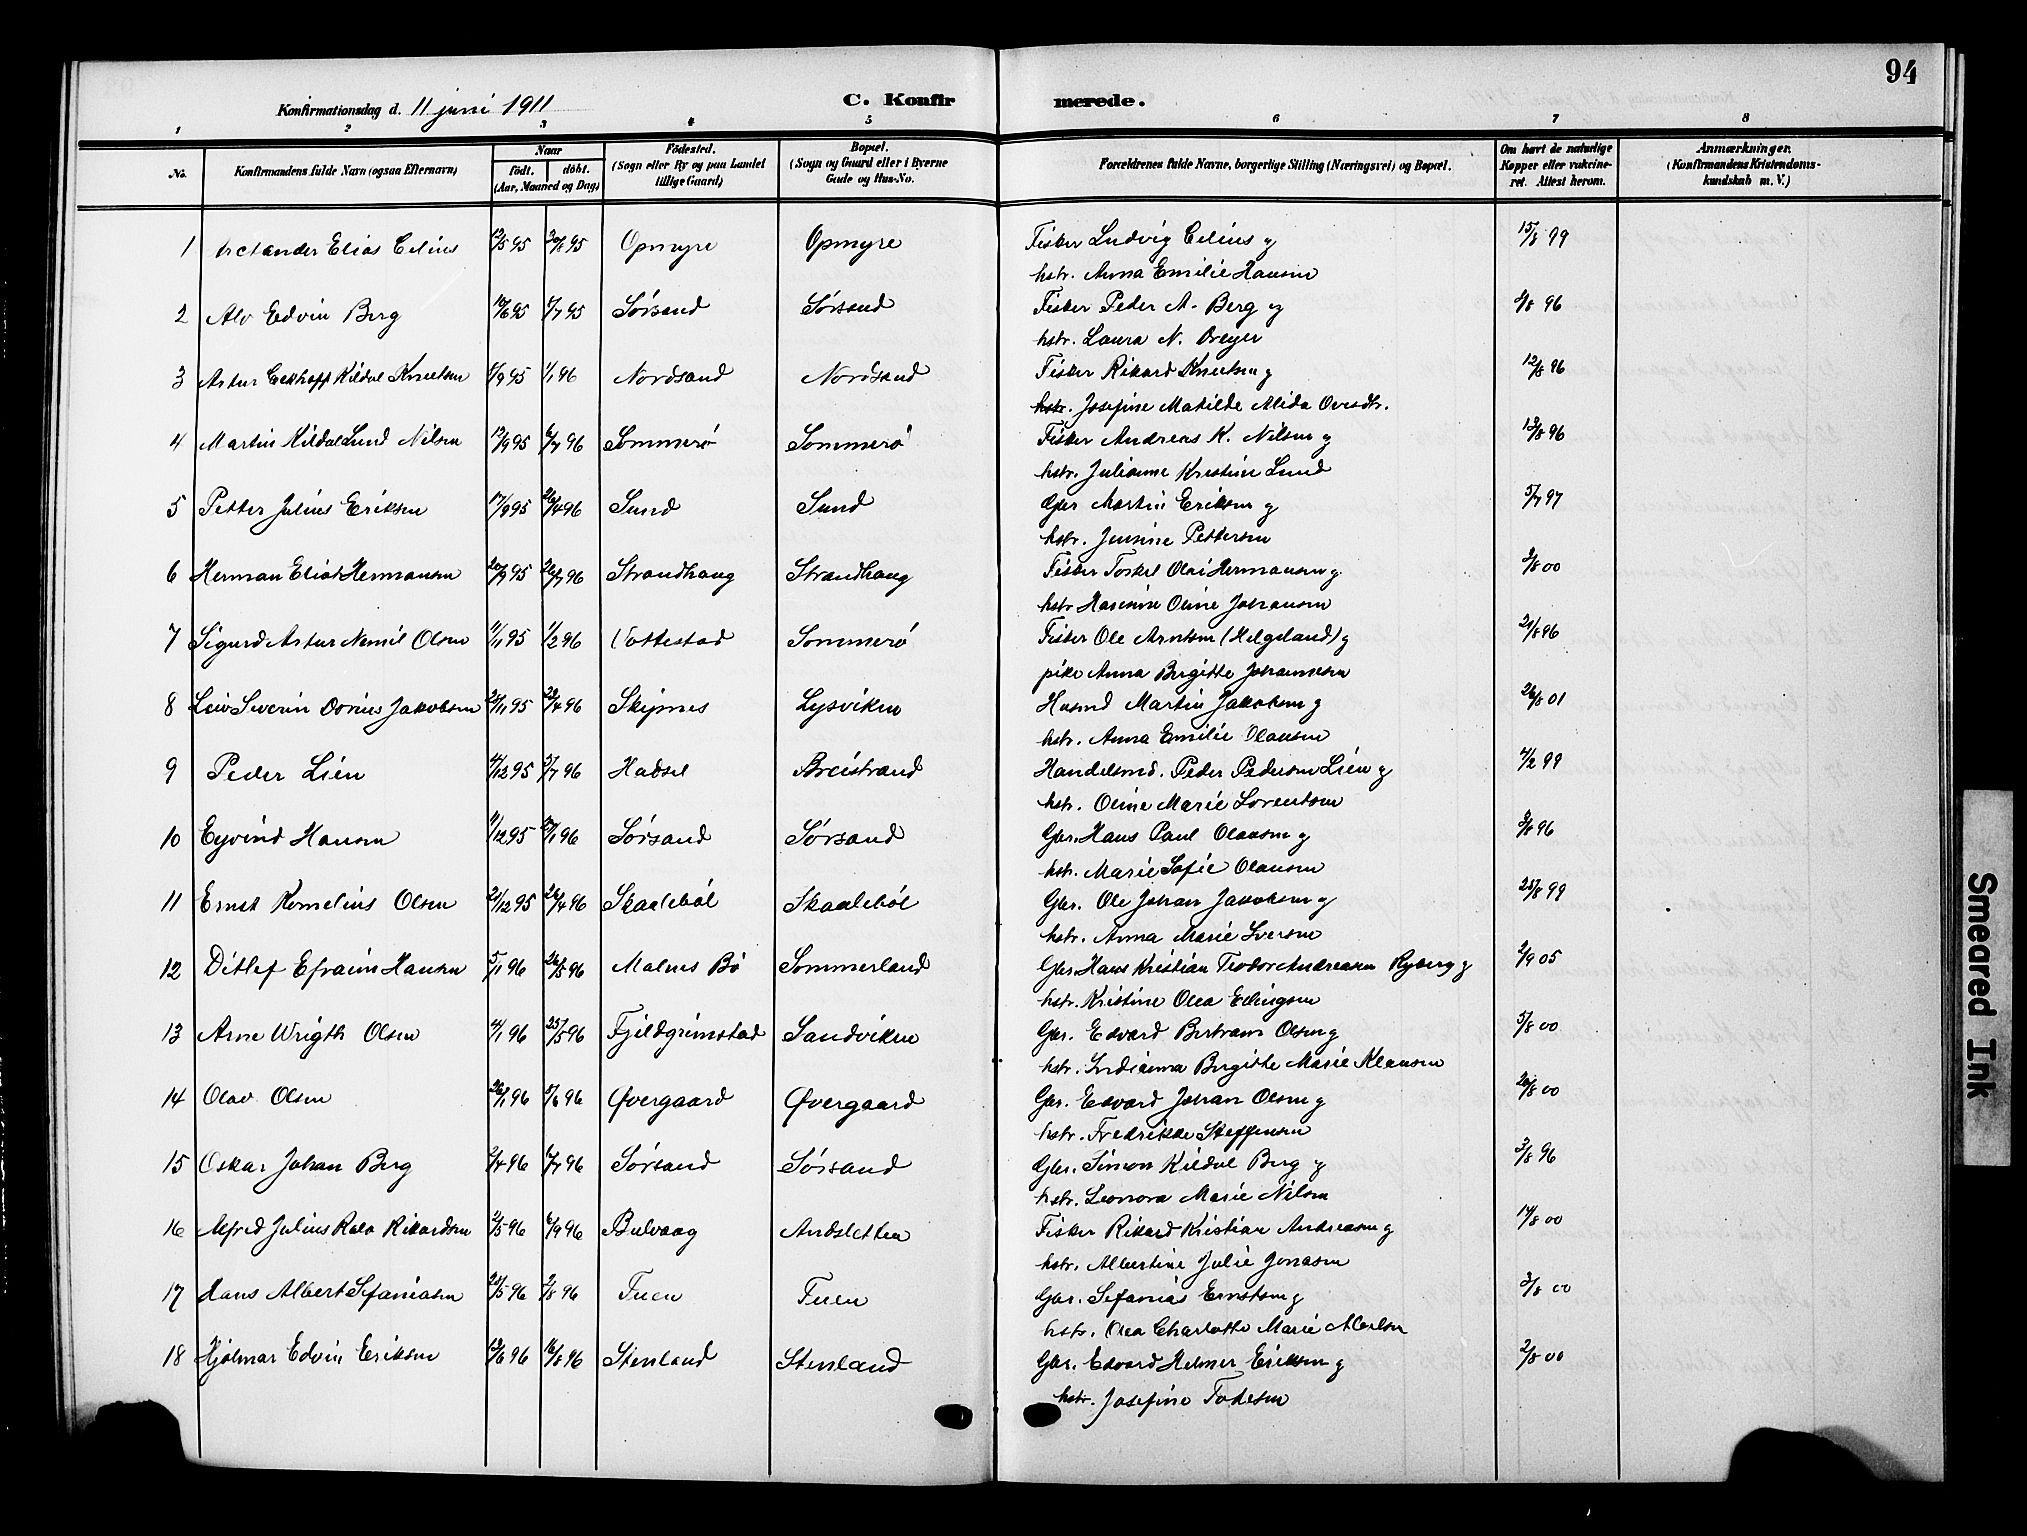 94
Konfirmationsdag d. 11 juni 1911
C. Konfirmerede.
1 2 3 4 5 6 7 8
No.
Konfirmandens fulde Navn (ogsaa Efternavn)
Naar
födt. döbt.
(Aar, Maaned og Dag)
Födested.
(Sogn eller By og paa Landet
tillige Gaard)
Bopæl.
(Sogn og Gaard eller i Byerne
Gade og Hus-No.
Forældrenes fulde Navne, borgerlige Stilling (Næringsvei) og Bopæl.
Om havt de naturlige
Kopper eller vakcine-
ret. Attest herom.
Anmærkninger.
(Konfirmandens Kristendoms-
kundskab m. V.)
1 Arctander Elias Celius 12/5 95 20/8 95 Opmyre Opmyre Fisker Ludvig Celius og 15/8 99
hstr. Anna Emilie Hansen
2 Alv Edvin Berg 10/6 95 /7 95 Sørsand Sørsand Fisker Peder A. Berg og /8 96
hstr. Laura N. Dreyer
3 Artur Eckhoff Kildal Knutsen /9 95 1/1 96 Nordsand Nordsand Fisker Rikard Knutsen og 12/8 96
hstr. Josefine Matilde Alida Ovesdtr.
4 Martin Kildal Lund Nilsen 13/9 95 6/7 96 Sommerø Sommerø Fisker Andreas K. Nilsen og 13/8 96
hstr. Julianne Kristine Lund
5 Petter Julius Eriksen 17/9 95 26/4 96 Sund Sund Gbr Martin Eriksen og 5/7 97
hstr. Jensine Pettersen
6 Herman Elias Hermansen 20/9 95 26/7 96 Strandhaug Strandhaug Fisker Torkel Olai Hermansen og 3/8 00
hstr Hansine Oline Johansen
7 Sigurd Artur Nemil Olsen 11/11 95 1/2 96 Vottestad Sommerø Fisker Ole Arntsen (Helgeland) og 21/8 96
pike Anna Birgitte Johannesen
8 Leiv Severin Dorius Jakobsen 21/11 95 22/4 96 Skipnes Lysviken Husmd Martin Jakobsen og 26/8 01
hstr. Anna Emilie Olausen
9 Peder Lien 4/12 95 5/7 96 Hadsel Breistrand Handelsmd. Peder Pedersen Lien og 4/2 99
hstr. Oline Marie Lorentsen
10 Eyvind Hansen 11/12 95 /1 96 Sørsand Sørsand Gbr. Hans Paul Olausen og /8 96
hstr. Marie Sofie Olausen
11 Ernst Kornelius Olsen 21/12 95 26/4 96 Skaalebøl Skaalebøl Gbr. Ole Johan Jakobsen og 25/8 99
hstr. Anna Marie Iversen
12 Ditlef Efraim Hansen 5/1 96 26/5 96 Malnes Bø Sommerland Gbr. Hans Kristian Teodor Andreasen Ryberg og 2/9 05
hstr. Kristine Olea Ellingsen
13 Arne Wrigth Olsen 4/1 96 25/5 96 Fjeldgrimstad Sandviken Gbr. Edvard Bertram Olsen og 5/8 00
hstr. Indianna Birgitte Marie Klausen
14 Olav Olsen 26/1 96 5/6 96 Øvergaard Øvergaard Gbr. Edvard Johan Olsen og 26/8 00
hstr. Fredrikke Steffensen
15 Oskar Johan Berg 2/4 96 6/7 96 Sørsand Sørsand Gbr. Simon Kildal Berg og 3/8 96
hstr. Leonora Marie Nilsen
16 Alfred Julius Kalo Rikardsen 2/5 96 6/9 96 Bulvaag Andsletten Fisker Rikard Kristian Andreasen og 14/8 00
hstr. Albertine Julie Jonasen
17 Hans Albert Sefaniasen 28/5 96 2/8 96 Fuen Fuen Gbr. Sefanias Ernstsen og 3/8 00
hstr. Olea Charlotte Marie Abelsen
18 Hjalmar Edvin Eriksen 13/6 96 16/8 96 Stenland Stenland Gbr. Edvard Helmer Eriksen og 2/8 00
hstr. Josefine Todesen
Smeared Ink